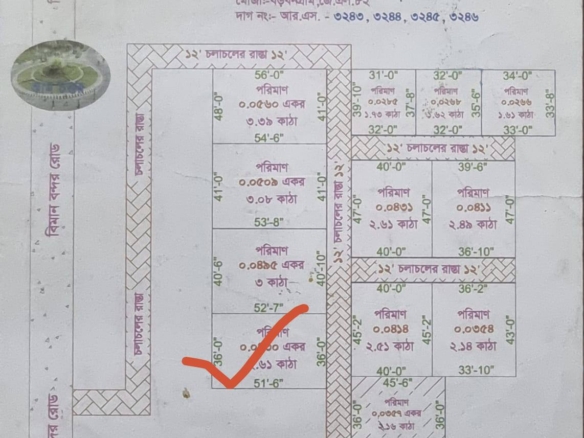 দাগ নং:- আর.এস. - ৩২৪৩, ৩২৪৪, ৩২৪৫, ৩২৪৬
১২' চলাচলের রাস্তা ১২'
চলাচলের রাস্তা
চলাচলের রাস্তা
বিমান বন্দর রোড
56'-0"
48'-0"
পরিমাণ
০.০৫৬০ একর
৩.৩৯ কাঠা
41'-0"
54'-6"
41'-0"
পরিমাণ
০.০৫০৯ একর
৩.০৮ কাঠা
41'-0"
53'-8"
40'-6"
পরিমাণ
০.০৪৯৫ একর
৩ কাঠা
40'-10"
52'-7"
36'-0"
পরিমাণ
একর
কাঠা
36'-0"
51'-6"
১২' চলাচলের রাস্তা ১২'
31'-0"
39'-10"
পরিমাণ
০.০২৮৫
১.৭৩ কাঠা
37'-8"
32'-0"
32'-0"
পরিমাণ
০.০২৬৮
কাঠা
35'-6"
32'-0"
34'-0"
পরিমাণ
০.০২৬৬
১.৬১ কাঠা
33'-8"
33'-0"
১২' চলাচলের রাস্তা ১২'
40'-0"
47'-0"
পরিমাণ
০.০৪৩১
২.৬১ কাঠা
47'-0"
40'-0"
39'-6"
পরিমাণ
০.০৪১১
২.৪৯ কাঠা
47'-0"
36'-10"
১২' চলাচলের রাস্তা ১২'
40'-0"
45'-2"
পরিমাণ
০.০৪১৪
২.৫১ কাঠা
45'-2"
40'-0"
36'-2"
পরিমাণ
০.০৩৫৪
২.১৪ কাঠা
43'-0"
33'-10"
45'-6"
36'-0"
পরিমাণ
০.০৩৫৭ একর
২.১৬ কাঠা
36'-0"